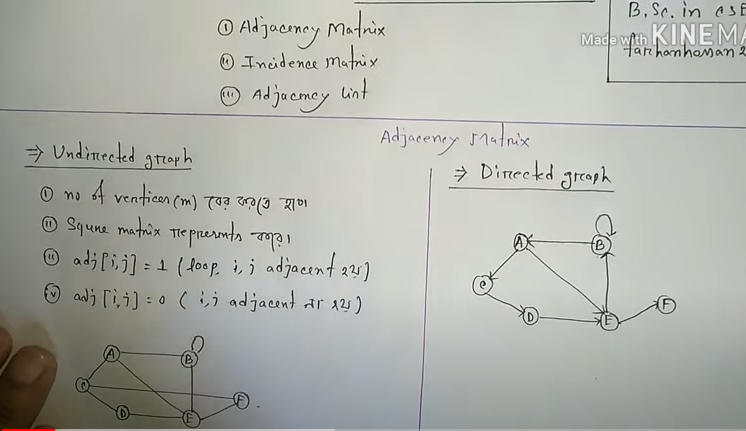 ① Adjacency Matrix
② Incidence Matrix
③ Adjacency List
B.Sc. in CSE
Made with KINEMA
farhanhasan2
Adjacency Matrix
⇒ Undirected graph
① no of vertices (m) বের করতে হবে
② Square matrix represents করে।
③ adj[i,j] = 1 (loop, i, j adjacent হয়)
④ adj[i,j] = 0 (i,j adjacent না হয়)
A B
C F
D E
⇒ Directed graph
A B
C F
D E